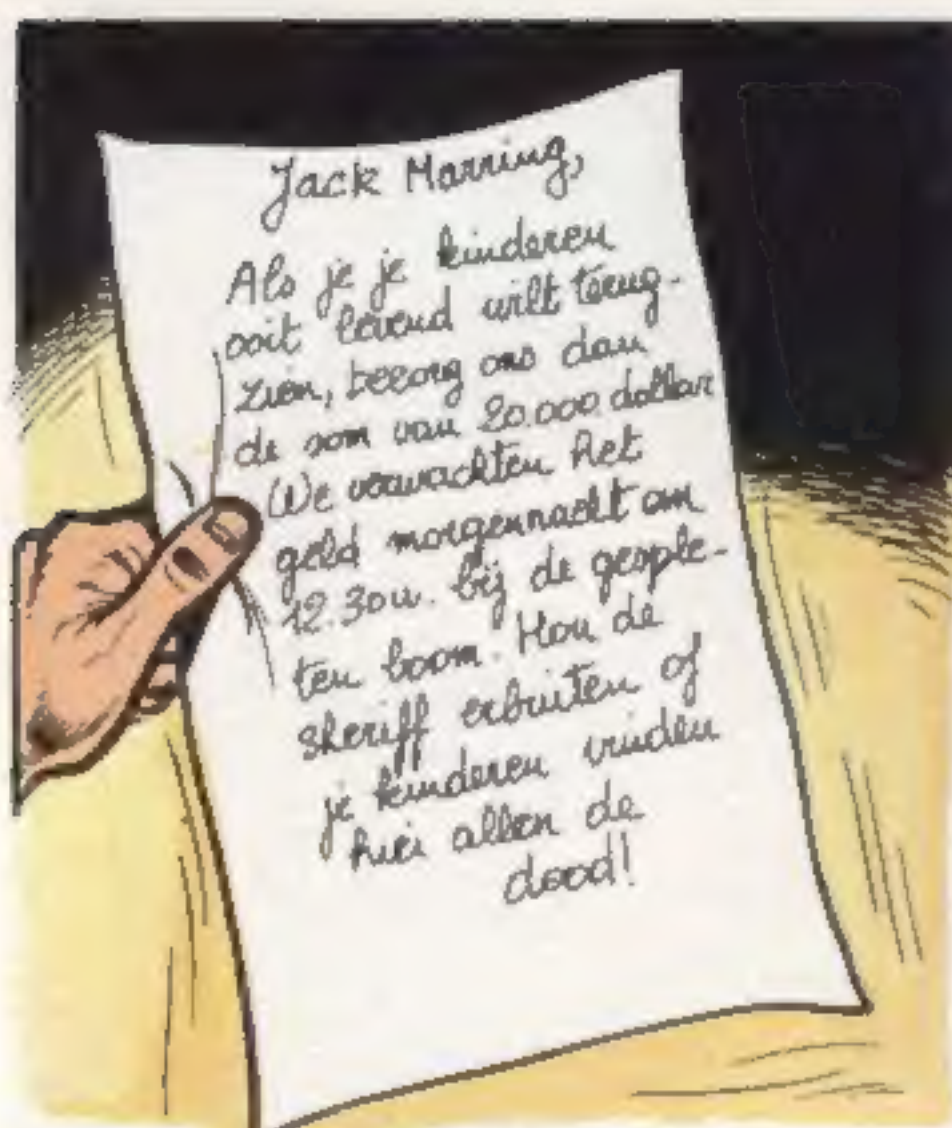 Jack Marring,
Als je je kinderen
ooit levend wilt terug-
zien, bezorg ons dan
de som van 20.000 dollar
We verwachten het
geld morgennacht om
12.30u. bij de gesple-
ten boom. Hou de
sheriff erbuiten of
je kinderen vinden
hier allen de
dood!